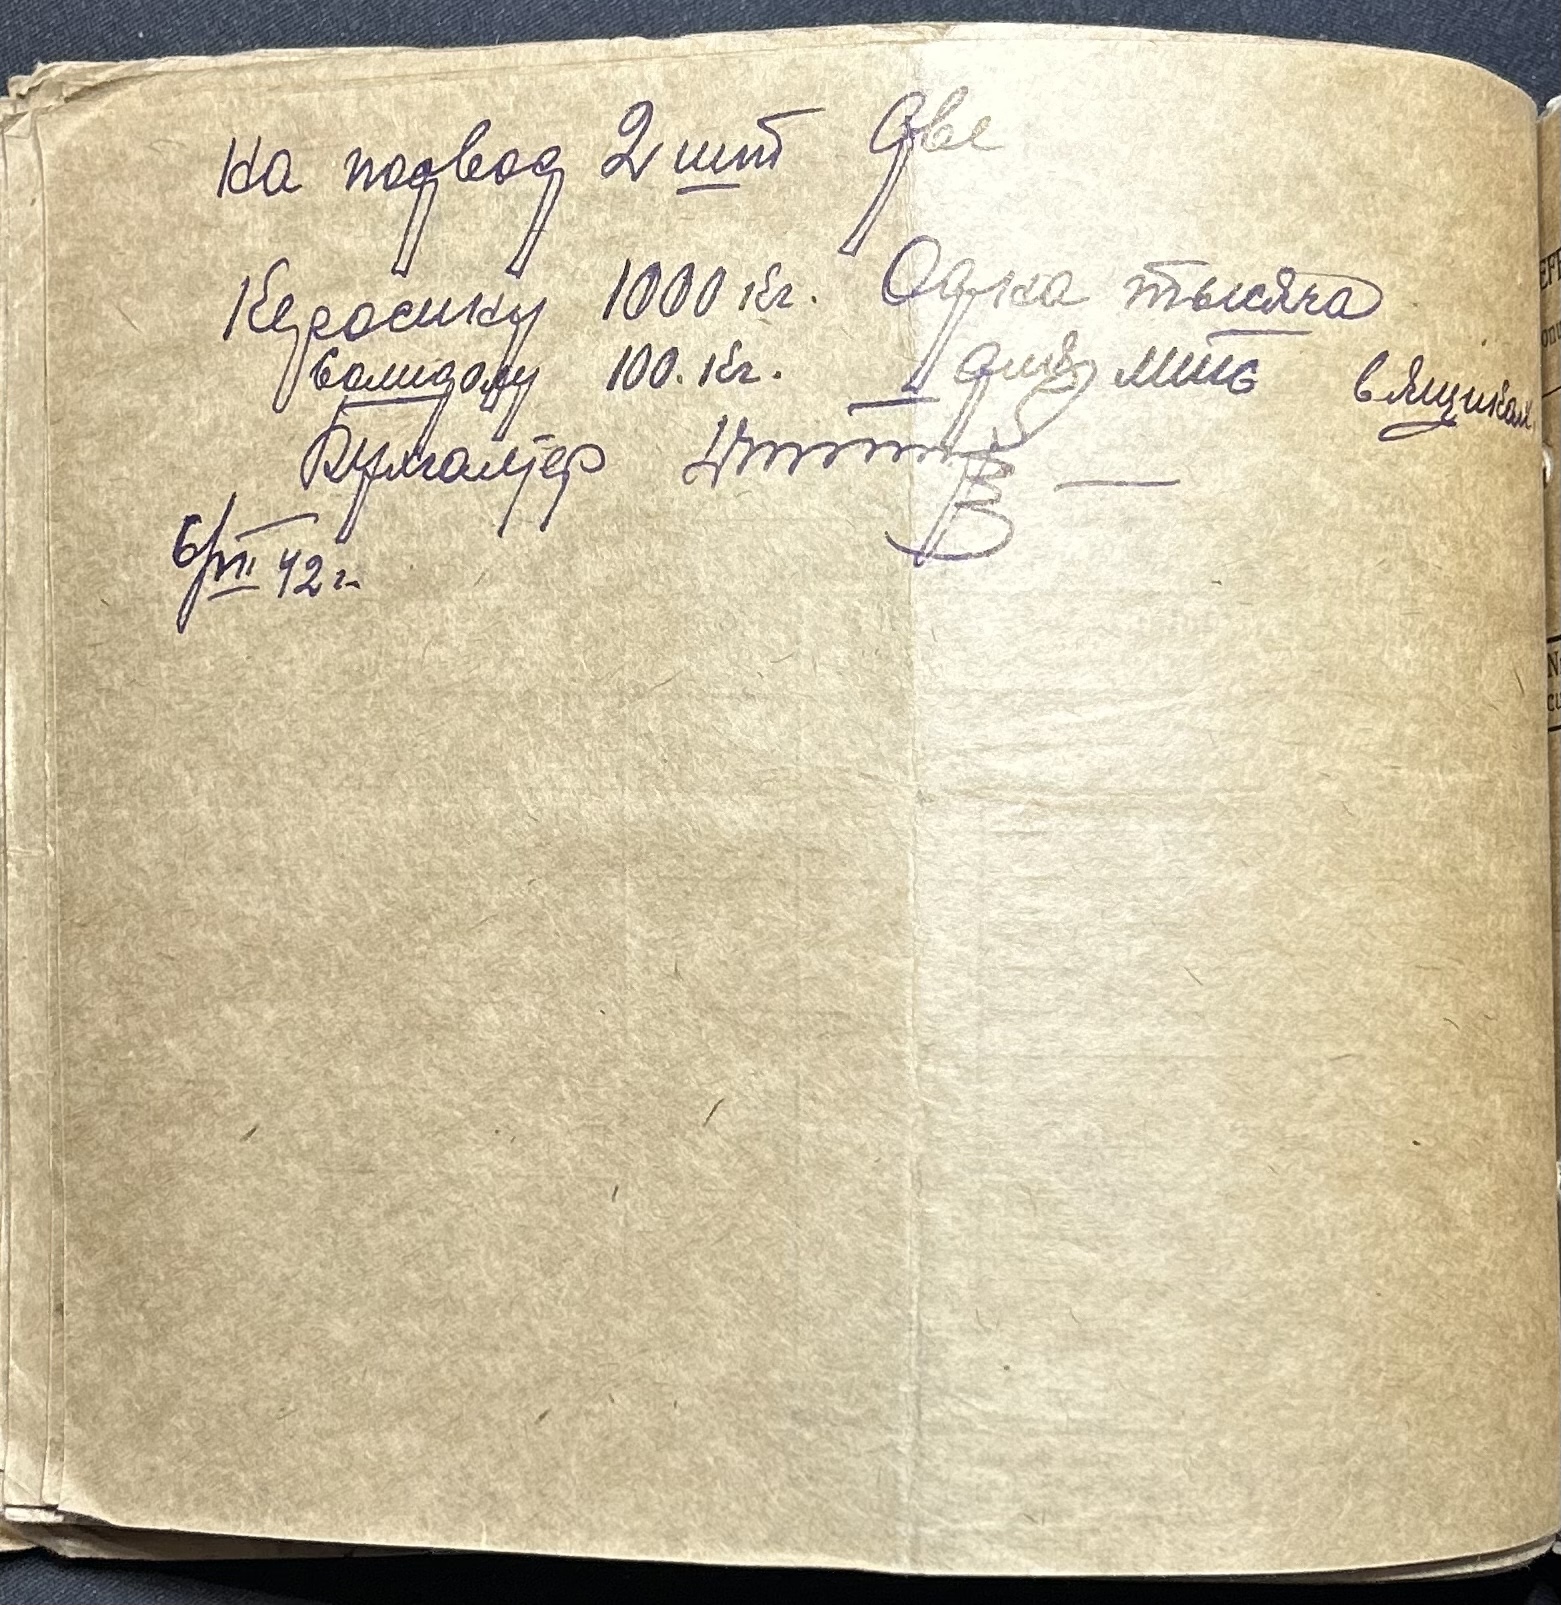 на подвод 2 шт две
Керосину 1000 кг. Одна тысяча
Солидолу 100. кг. для МТС в ящиках
Бухгалтер
6/VII 42 г.